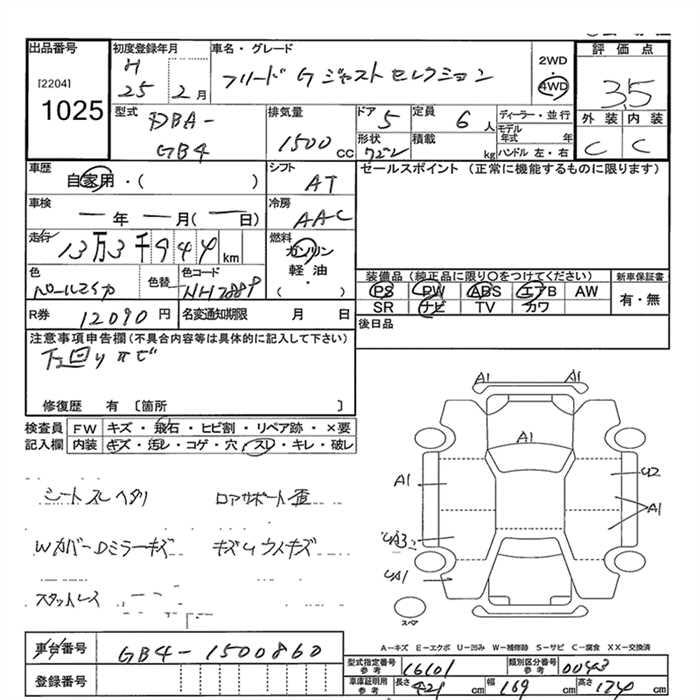 出品番号
[2204]
1025
初度登録年月
H
25 2月
車名・グレード
フリード G ジャストセレクション
2WD
・
4WD
評価点
3.5
外装 内装
C C
型式
DBA-
GB4
排気量
1500 CC
ドア 5
形状
ワゴン
定員 6 人
積載 kg
ディーラー・並行
モデル年式 年
ハンドル 左・右
車歴
自家用・( )
シフト
AT
セールスポイント (正常に機能するものに限ります)
車検
― 年 ― 月( ― 日)
冷房
AAC
走行 13万3千944 km
燃料
ガソリン
軽油
( )
色
パールマイカ
色替
色コード
NH788P
装備品 (純正品に限り○をつけてください)
PS PW ABS エアB AW
SR ナビ TV カワ
新車保証書
有・無
R券 12090円
名変通知期限 月 日
後日品
注意事項申告欄(不具合内容等は具体的に記入して下さい)
下廻りサビ
修復歴 有 〔箇所 〕
検査員記入欄
FW キズ・飛石・ヒビ割・リペア跡・×要
内装 キズ・汚レ・コゲ・穴・スレ・キレ・破レ
シートスレヘタリ ロアサポート歪
WカバーDミラーキズ キズUウスキズ
スタットレス
A1 A1
A1
A1 U2
A1
UA3
UA1
スペア
A－キズ E－エクボ U－凹み W－補修跡 S－サビ C－腐食 XX－交換済
車台番号 GB4-1500860
登録番号
型式指定番号 参考 16101
類別区分番号 参考 0043
車庫証明用 参考 長さ 421 cm 幅 169 cm 高さ 174 cm